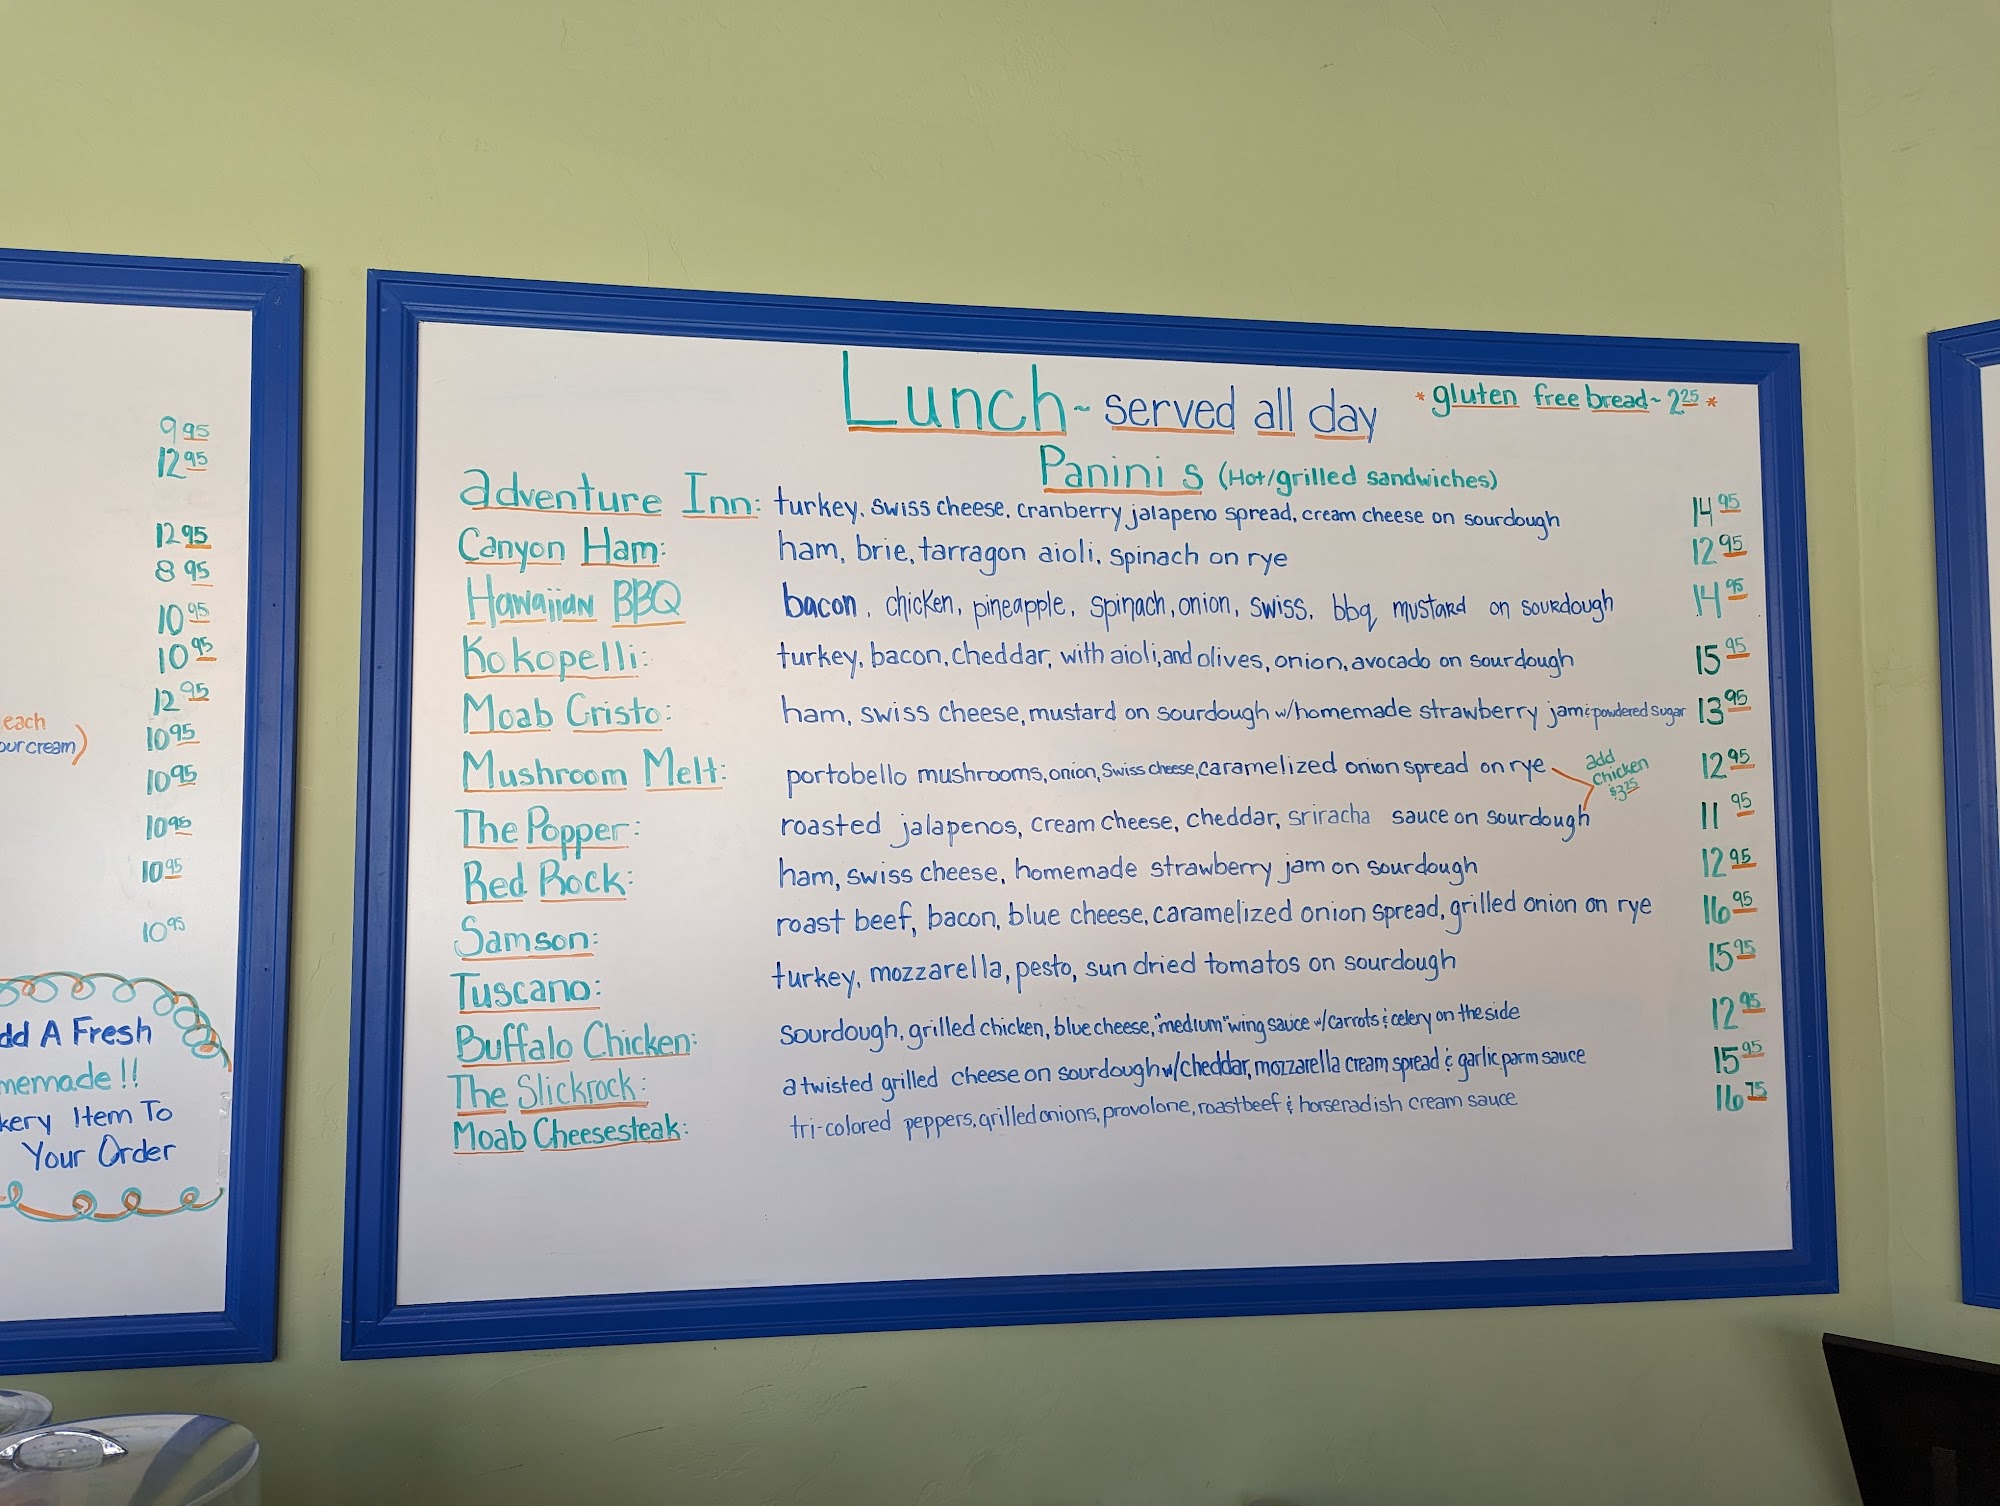 9.95
12.95
12.95
8.95
10.95
10.95
12.95
each
10.95
our cream)
10.95
10.95
10.95
10.95
dd A Fresh
memade!!
kery Item To
Your Order
Lunch ~ served all day *gluten free bread~ 2.25*
Panini s (Hot/grilled sandwiches)
adventure Inn: turkey, swiss cheese, cranberry jalapeno spread, cream cheese on sourdough 14.95
Canyon Ham: ham, brie, tarragon aioli, spinach on rye 12.95
Hawaiian BBQ bacon, chicken, pineapple, spinach, onion, swiss, bbq mustard on sourdough 14.95
Kokopelli: turkey, bacon, cheddar, with aioli, and olives, onion, avocado on sourdough 15.95
Moab Cristo: ham, swiss cheese, mustard on sourdough w/homemade strawberry jam & powdered sugar 13.95
Mushroom Melt: portobello mushrooms, onion, Swiss cheese, caramelized onion spread on rye 12.95
add
chicken
$3.25
The Popper: roasted jalapenos, cream cheese, cheddar, sriracha sauce on sourdough 11.95
Red Rock: ham, swiss cheese, homemade strawberry jam on sourdough 12.95
Samson: roast beef, bacon, blue cheese, caramelized onion spread, grilled onion on rye 16.95
Tuscano: turkey, mozzarella, pesto, sun dried tomatos on sourdough 15.95
Buffalo Chicken: sourdough, grilled chicken, blue cheese, "medium" wing sauce w/carrots & celery on the side 12.95
The Slickrock: a twisted grilled cheese on sourdough w/cheddar, mozzarella cream spread & garlic parm sauce 15.95
Moab Cheesesteak: tri-colored peppers, grilled onions, provolone, roast beef & horseradish cream sauce 16.75